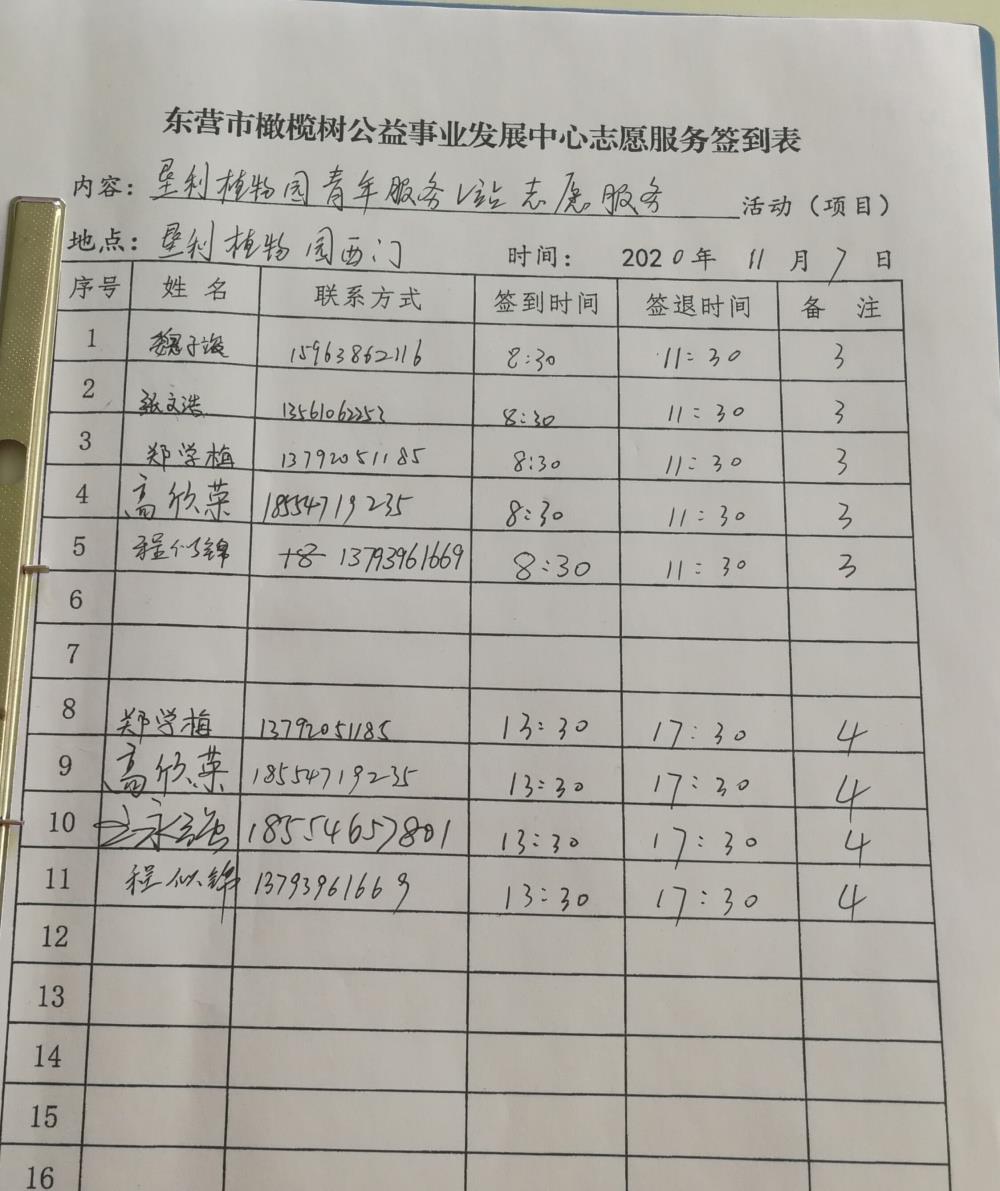 东营市橄榄树公益事业发展中心志愿服务签到表
内容：垦利植物园青年服务V站志愿服务 活动（项目）
地点：垦利植物园西门 时间： 2020年 11 月 7 日
序号 姓 名 联系方式 签到时间 签退时间 备 注
1 15963862116 8:30 11:30 3
2 张文浩 13561062253 8:30 11:30 3
3 郑学梅 13792051185 8:30 11:30 3
4 高欣荣 18554719235 8:30 11:30 3
5 程似锦 13793961669 8:30 11:30 3
6
7
8 郑学梅 13792051185 13:30 17:30 4
9 高欣荣 18554719235 13:30 17:30 4
10 永强 18554657801 13:30 17:30 4
11 程似锦 13793961669 13:30 17:30 4
12
13
14
15
16